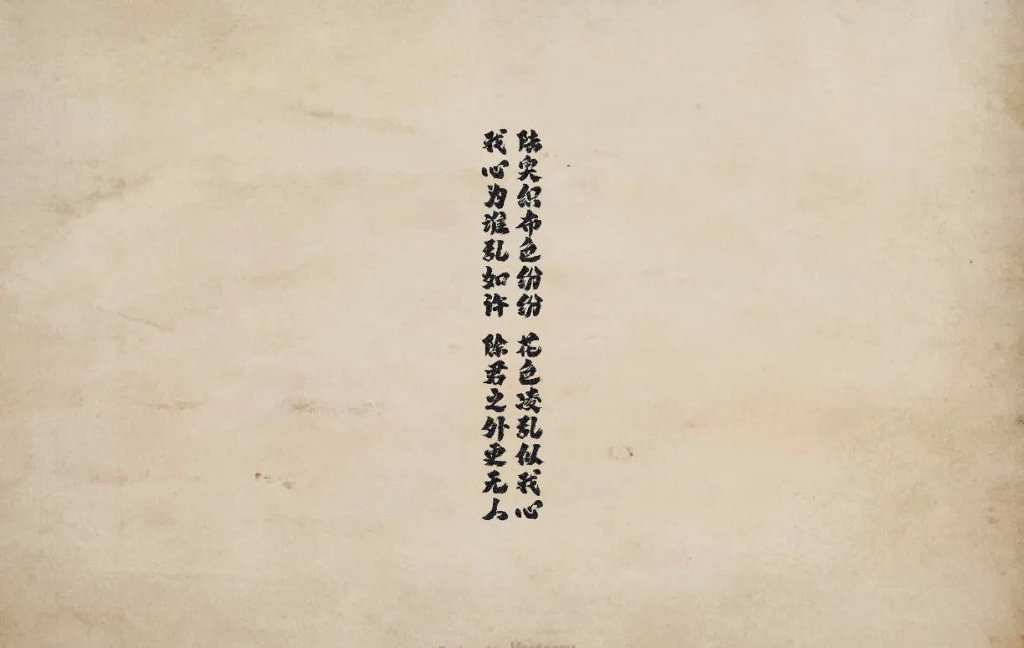 陆奥织布色纷纷 花色凌乱似我心
我心为谁乱如许 除君之外更无人